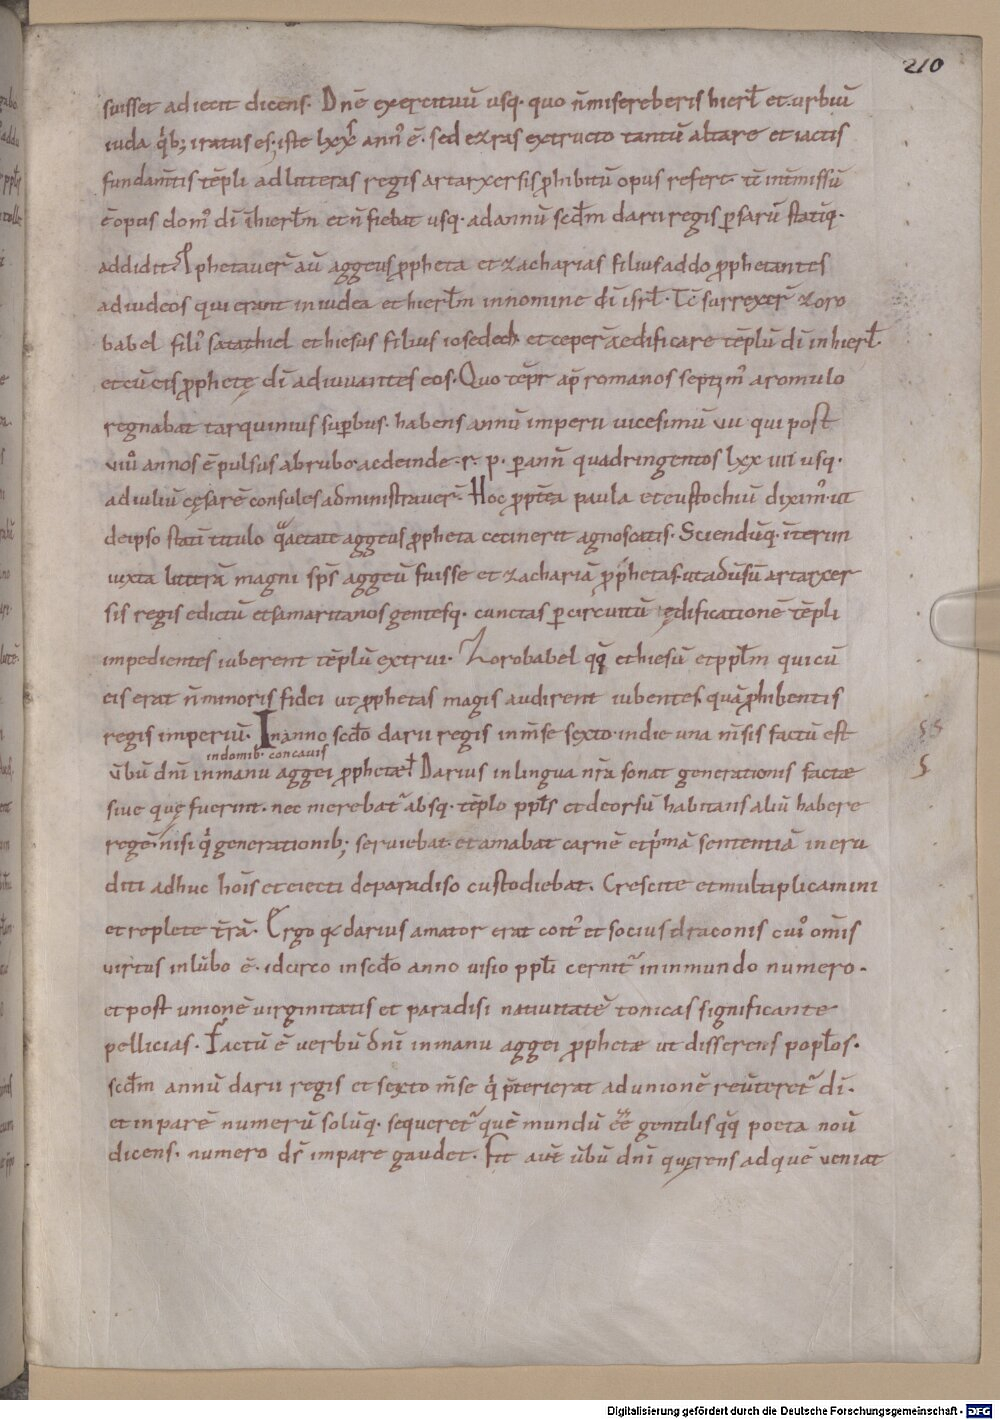 210
suisset adiecit dicens. Dnē exercituū usq. quo n̄ misereberis hierl̄ et urbiū
iuda qͥb; iratus es, iste lxxͫ annꝰ ē. sed ezras extructo tantū altare et iactis
fundam̄tis tēpli ad litteras regis artarxersis ꝓhibitū opus refert. tē int̄missū
ē opus domꝰ dī ī hierl̄m et n̄ fiebat usq. ad annū scd̄m darii regis ꝑsarū statīq.
addidit. Ꝓphetaver̄ aū aggeus ꝓpheta et zacharias filius addo ꝓphetantes
ad iudeos qui erant in iudea et hierl̄m in nomine dī isrl̄. Tc̄ surrexer̄ zoro
babel filiꝰ salathiel et hiesus filius iosedech et ceper̄ aedificare tēplū dī in hierl̄.
et cū eis ꝓphetę dī adiuvantes eos. Quo tēpr ap̄ romanos septimꝰ a romulo
regnabat tarquinius suꝑbus. habens annū imperii vicesimū vii qui post
viii annos expulsus a bruto. ac deinde .r. p. ꝑ ann̄ quadringentos lxx iiii usq.
ad iuliū cęsarē consules administraver̄. Hoc ꝓpt̄ea paula et eustochiū diximꝰ. ut
de ipso stati titulo qͣ aetate aggeus ꝓpheta cecinerit agnoscatis. Sciendūq. īterim
iuxta litterā magni sp̄s aggeū fuisse et zachariā ꝓphetas. ut adūsū artarxer
sis regis edictū et samaritanos gentesq. cunctas ꝑ circuitū ędificationē tēpli
impedientes iuberent tēplū extrui. Zorobabel qͦq et hiesū et ppl̄m qui cū
eis erat n̄ minoris fidei ut ꝓphetas magis audirent iubentes. quā ꝓhibentis
regis imperiū. In anno scd̄o darii regis in m̄se sexto. in die una m̄sis factū est
in domib. concavis
ūbū dn̄i in manu aggei ꝓphetae l̄ Darius in lingua nr̄a sonat generationis factae
sive quę fuerint. nec merebatͬ absq. tēplo ppl̄s et deorsū habitans aliū habere
regē. nisi qͥ generationib; serviebat. et amabat carnē et pͥmā sententiā in eru
diti adhuc hoīs et eiecti de paradiso custodiebat. Crescite et multiplicamini
et replete t̄rā. Ergo qͣ darius amator erat coitꝰ et socius draconis cuiꝰ om̄is
virtus in lūbo ē. idcirco in scd̄o anno visio ppl̄i cernitͬ in inmundo numero.
et post unionē virginitatis et paradisi nativitatē tonicas significante
pellicias. Factū ē verbū dn̄i in manu aggei ꝓphetae ut disserens popl̄os.
scd̄m annū darii regis et sexto m̄se qͥ p̄terierat ad unionē reūteretͬ dī.
et inparē numerū solūq. sequeretͬ quē mundū ēē gentilis qͦq poeta novit
dicens. numero ds̄ impare gaudet. Fit aut̄ ūbū dn̄i quęrens ad quē veniat
Digitalisierung gefördert durch die Deutsche Forschungsgemeinschaft - DFG